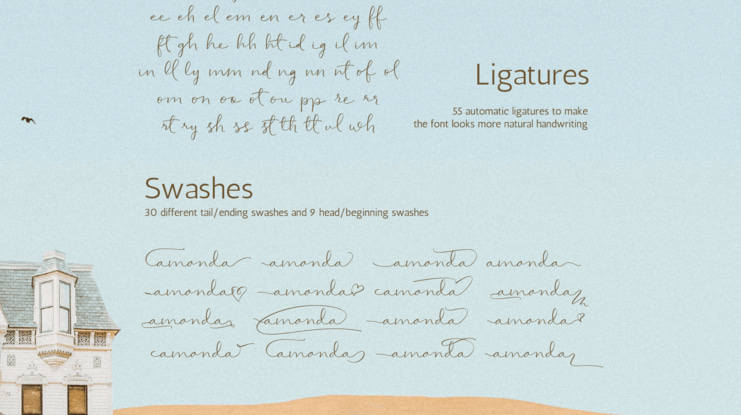 ee eh el em en er es ey ff
ft gh he hh ht id ig il im
in ll ly mm nd ng nn nt of ol
om on oo ot ou pp re rr
rt ry sh ss st th tt ul wh
Ligatures
55 automatic ligatures to make
the font looks more natural handwriting
Swashes
30 different tail/ending swashes and 9 head/beginning swashes
amonda amonda amonda amonda
amonda amonda amonda amonda
amonda amonda amonda amonda
amonda amonda amonda amonda